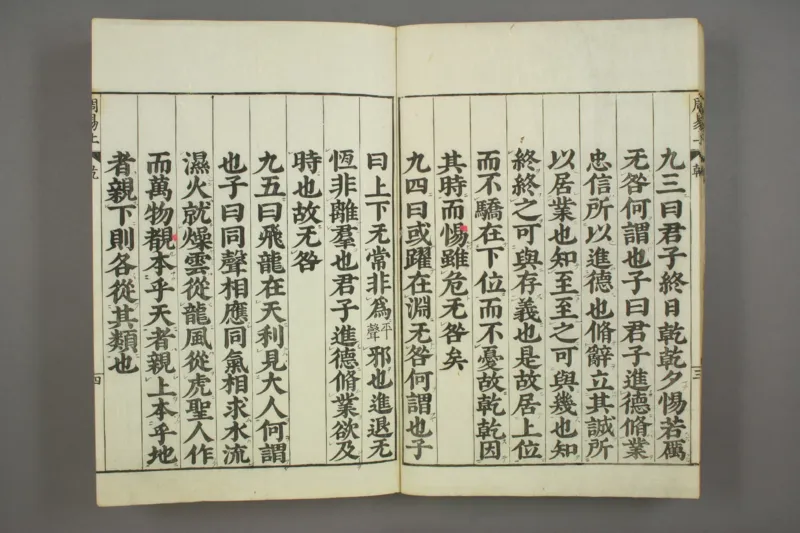 九三曰君子終日乾乾夕惕若厲
无咎何謂也子曰君子進德脩業
忠信所以進德也脩辭立其誠所
以居業也知至至之可與幾也知
終終之可與存義也是故居上位
而不驕在下位而不憂故乾乾因
其時而惕雖危无咎矣
九四曰或躍在淵无咎何謂也子
曰上下无常非爲平聲邪也進退无
恆非離羣也君子進德脩業欲及
時也故无咎
九五曰飛龍在天利見大人何謂
也子曰同聲相應同氣相求水流
濕火就燥雲從龍風從虎聖人作
而萬物覩本乎天者親上本乎地
者親下則各從其類也
周易上
乾
三
周易上
乾
四